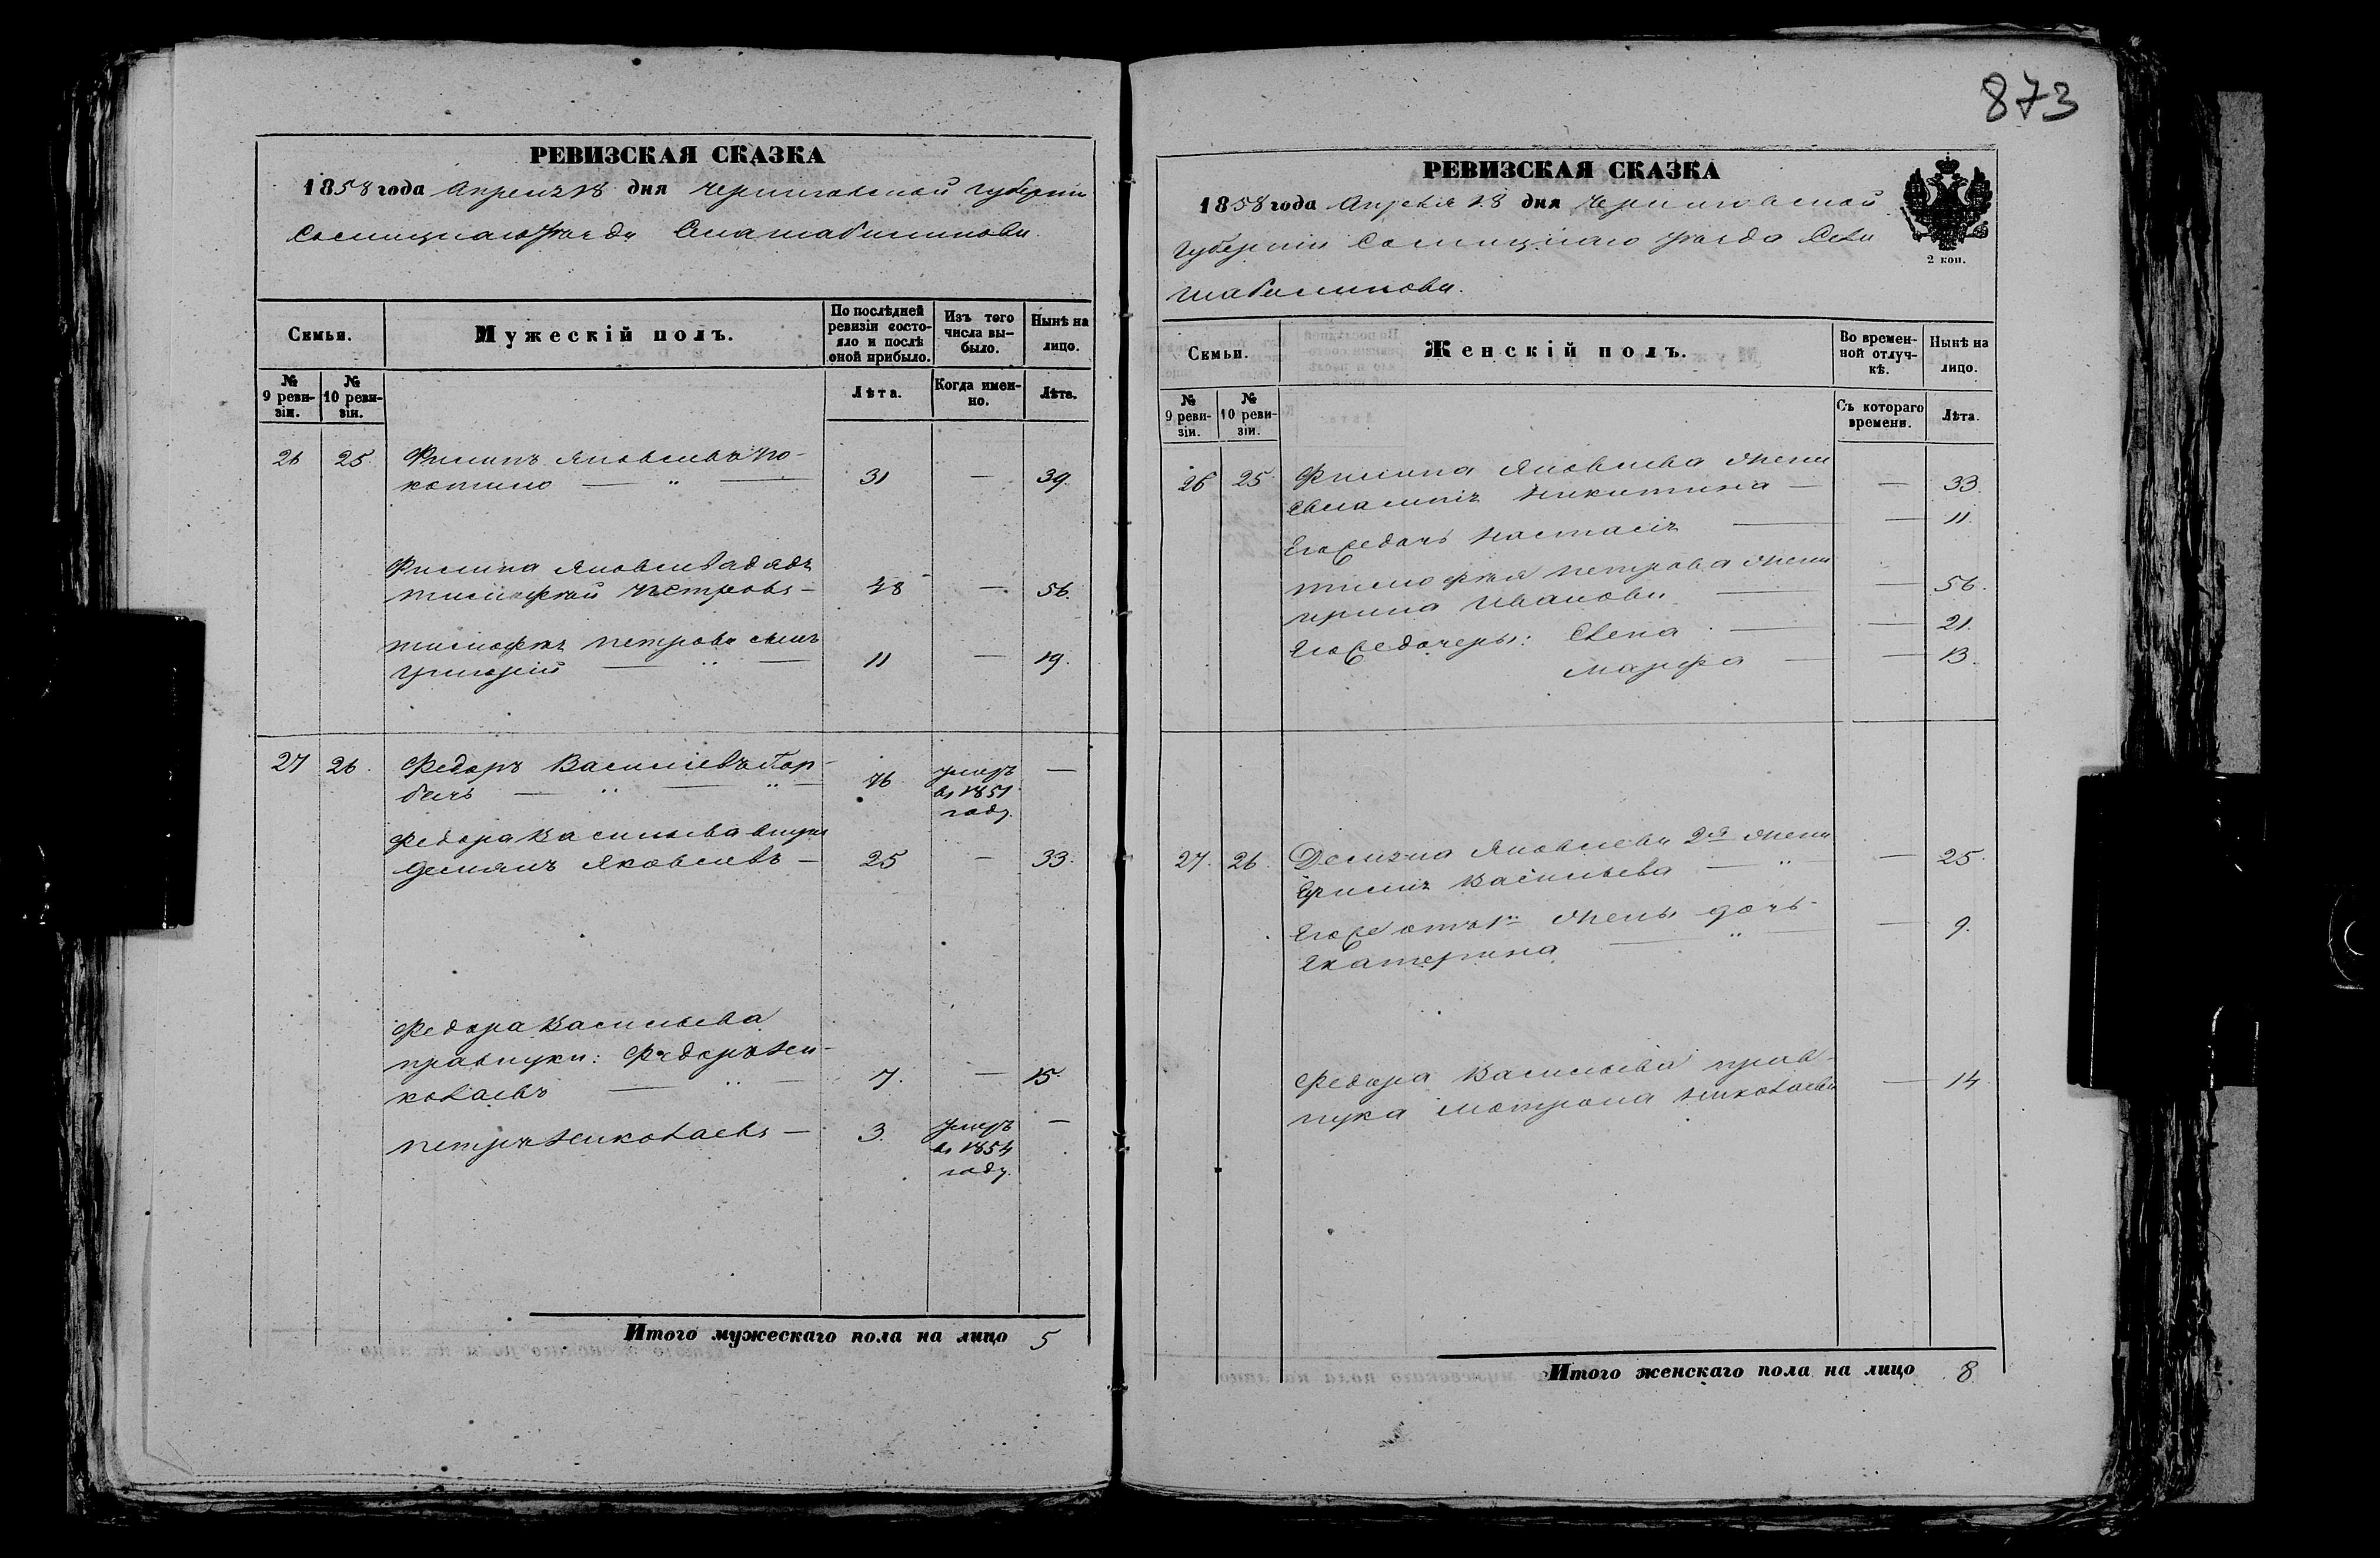 873
РЕВИЗСКАЯ СКАЗКА
1858 года Апреля 18 дня Черниговской Губернии
Сосницкаго уезда Села Шабалинова.
Семьи.
Мужескій полъ.
По послѣдней ревизіи состояло и послѣ оной прибыло.
Изъ того числа выбыло.
Нынѣ на лицо.
№ 9 ревизіи.
№ 10 ревизіи.
Лѣта.
Когда именно.
Лѣта.
26 25 Филипъ Яковлевъ
31 — 39.
Филипа Яковлева дядя
Тимофей Петровъ — 48 — 56.
Тимофея Петрова сынъ
Григорій — " — 11 — 19.
27 26. Федоръ Васильевъ Гор-
бачь — " — " — 76 умеръ въ 1851 году. —
Федора Васильева внукъ
Демянъ Яковлевъ — 25 — 33.
Федора Васильева
правнуки: Федоръ Ни-
колаевъ — " — 7. — 15.
Петръ Николаевъ — 3. умеръ въ 1854 году. —
Итого мужескаго пола на лицо 5
РЕВИЗСКАЯ СКАЗКА
1858 года Апреля 18 дня Черниговской
Губерніи Сосницкаго уезда Села
Шабалинова.
2 коп.
Семьи.
Женскій полъ.
Во временной отлучкѣ.
Нынѣ на лицо.
№ 9 ревизіи.
№ 10 ревизіи.
Съ котораго времени.
Лѣта.
26 25 Филипа Яковлева жена
Никитина — — 33.
Егоже дочь Настасія — — 11.
Тимофея Петрова жена
Ирина Иванова — — 56.
Егоже дочери: Елена — — 21.
Марфа — — 13.
27. 26. Демяна Яковлева 2я жена
Васильева — " — 25.
Егоже отъ 1й жены дочь
Екатерина — " — 9.
Федора Васильева прав-
нука Мотрона Николаева — 14
Итого женскаго пола на лицо 8